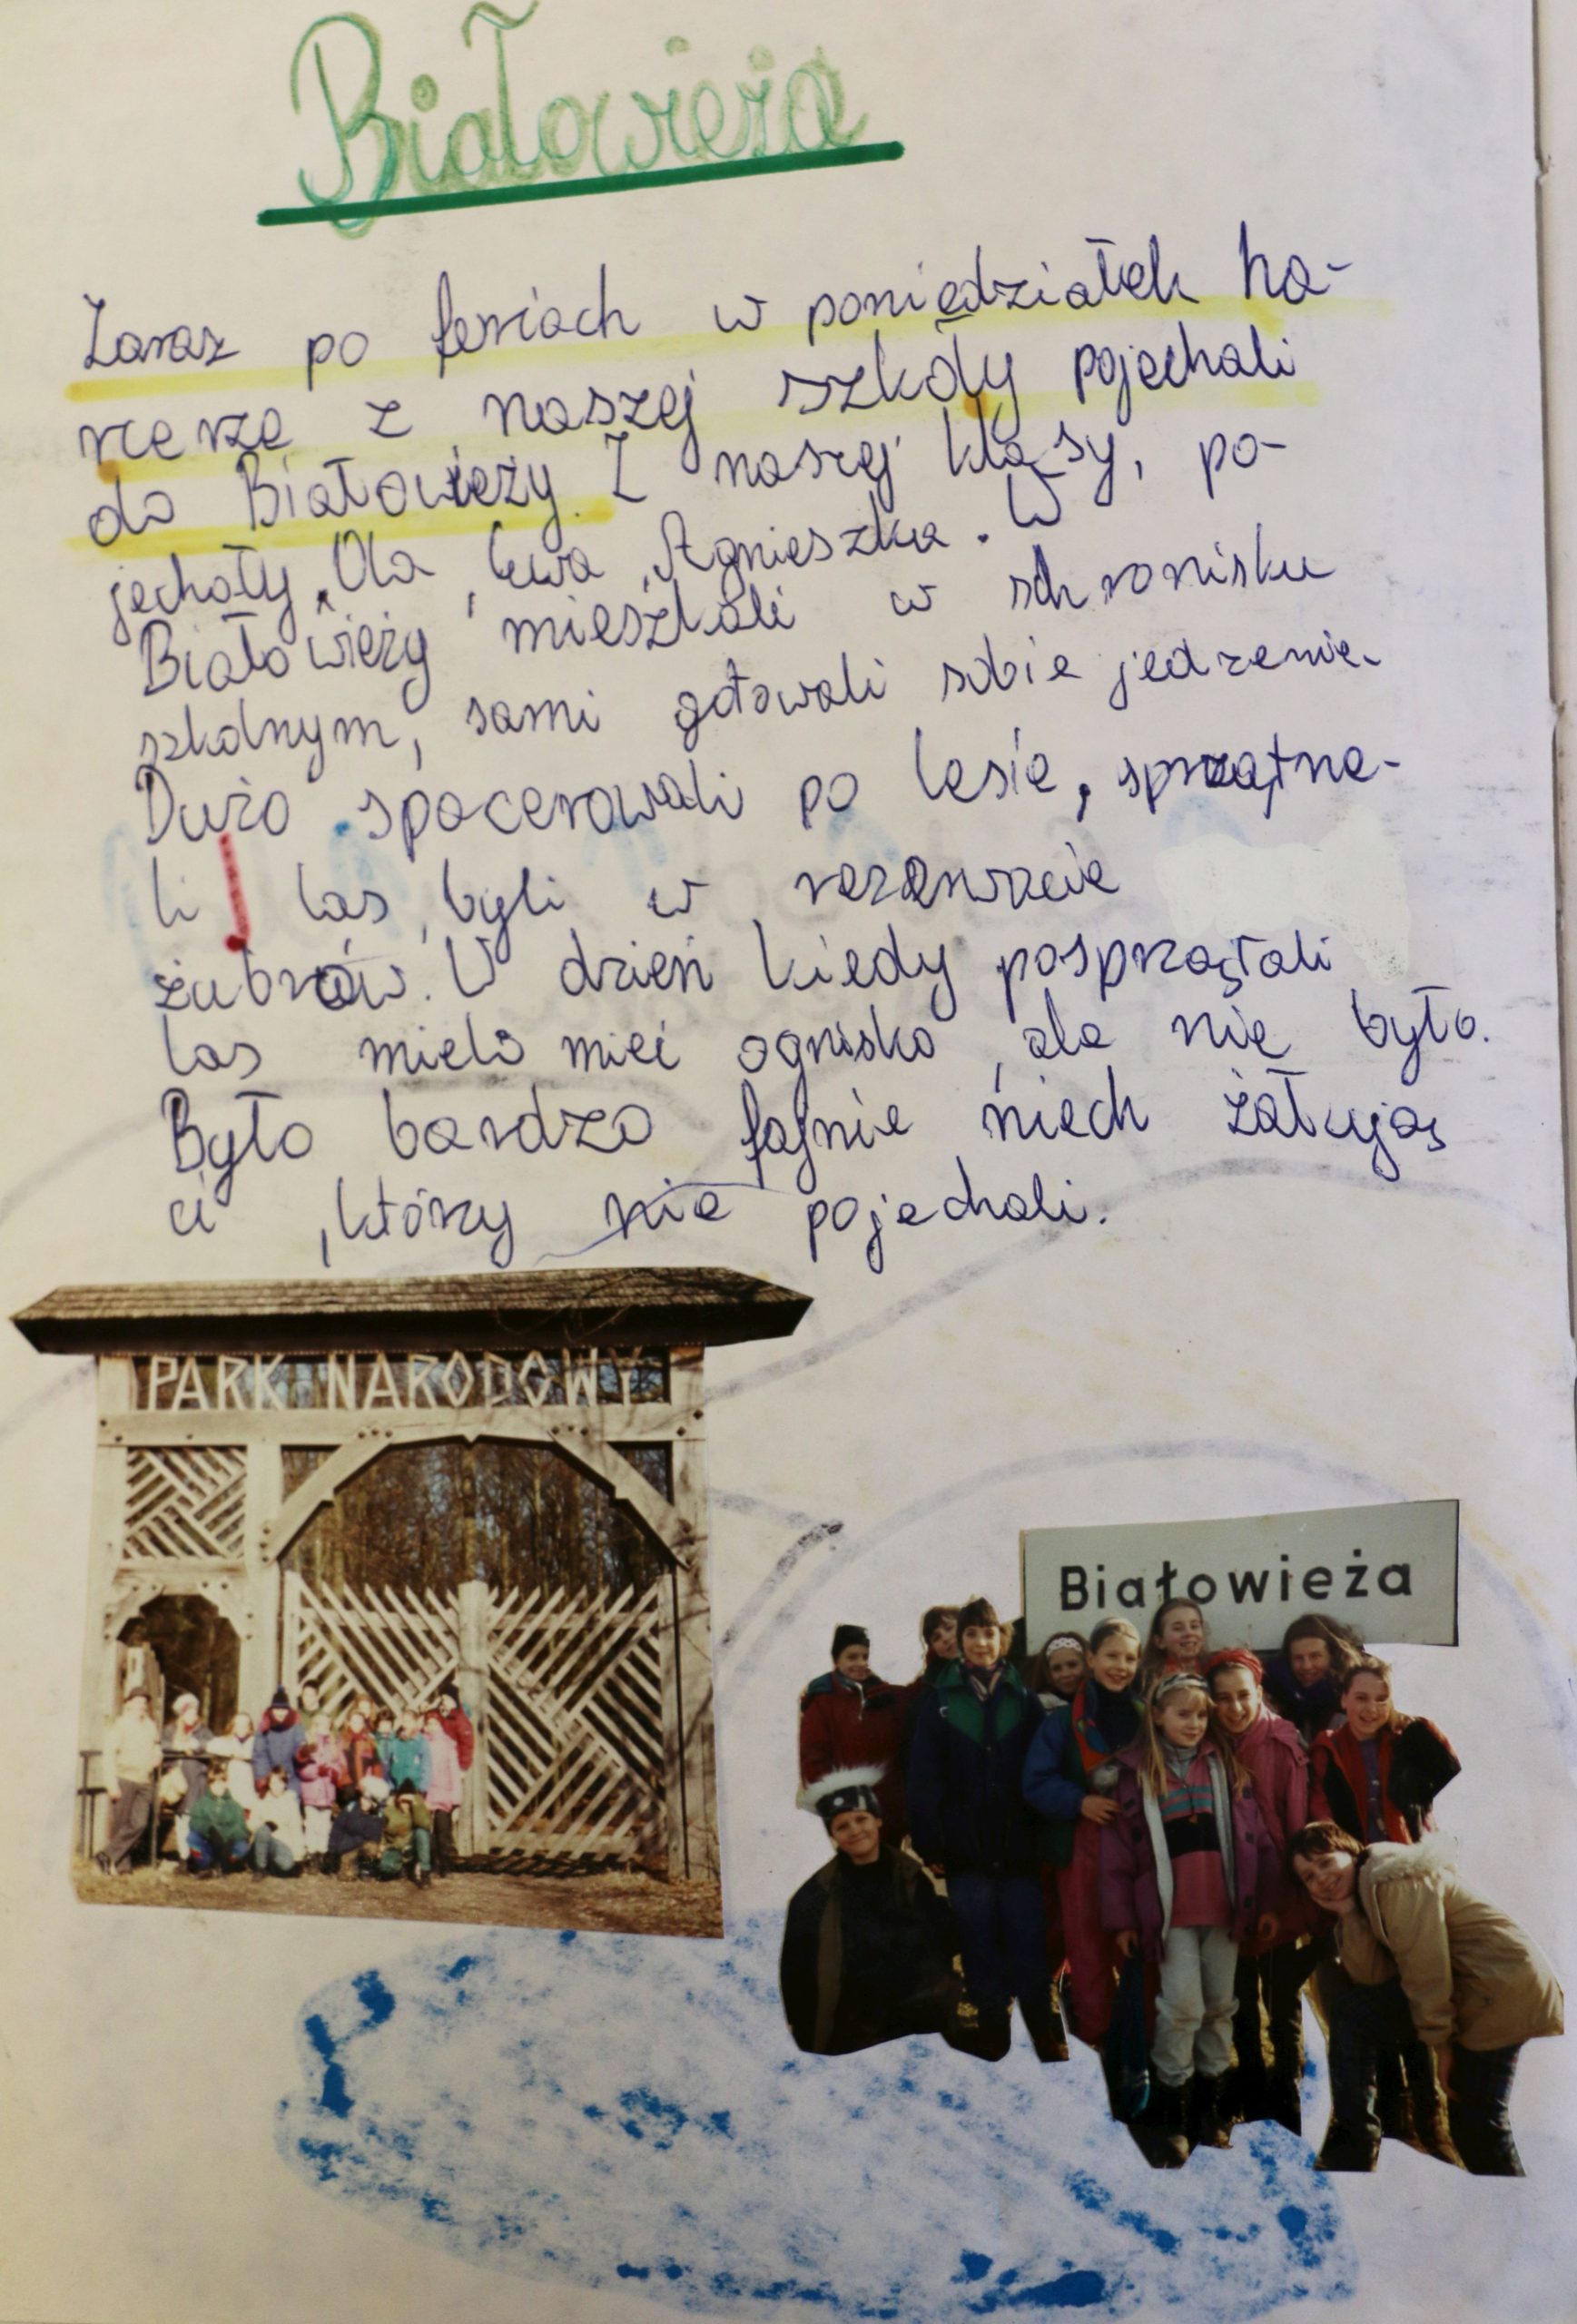 Białowieża
Zaraz po feriach w poniedziałek ha-
rcerze z naszej szkoły pojechali
do Białowieży. Z naszej klasy, po-
jechały, Ola, Ewa, Agnieszka. W
Białowieży mieszkali w schronisku
szkolnym, sami gotowali sobie jedzenie.
Dużo spacerowali po lesie, sprzątne-
li las, byli w rezerwacie
żubrów. W dzień kiedy posprzątali
las mieli mieć ognisko, ale nie było.
Było bardzo fajnie, niech żałują
ci, którzy nie pojechali.
PARK NARODOWY
Białowieża